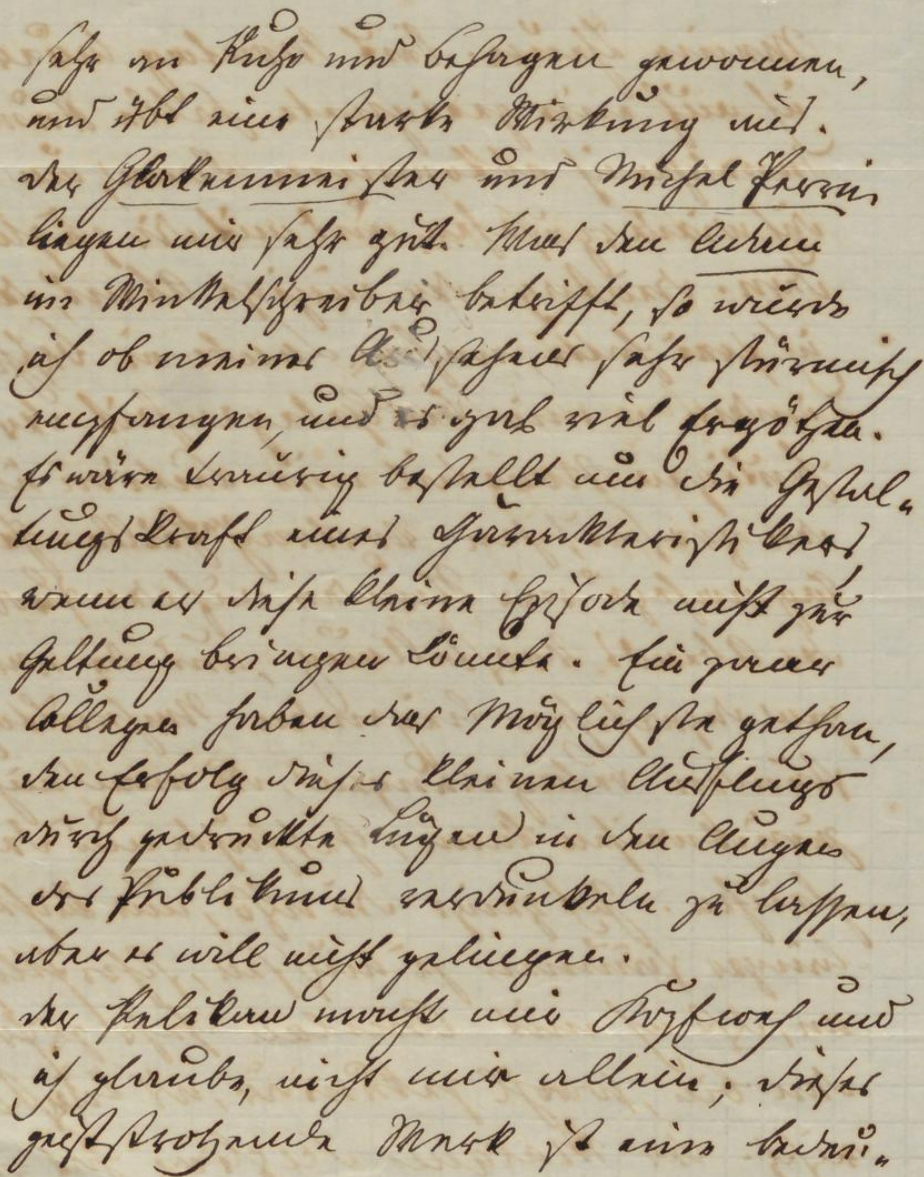 sehr an Ruhe und Behagen gewonnen,
und übt eine starke Wirkung aus.
der Glockenmeister und Michel Perrin
liegen mir sehr gut. Was den Adam
im Winkelschreiber betrifft, so wurde
ich ob meines Aussehens sehr stürmisch
empfangen, und es gab viel Ergötzen.
Es wäre traurig bestellt um die Gestal-
tungskraft eines Charakteristikers,
wenn er diese kleine Episode nicht zur
Geltung bringen könnte. Ein paar
Collegen haben das Möglichste gethan,
den Erfolg dieses kleinen Ausflugs
durch gedruckte Lügen in den Augen
des Publikums verdunkeln zu lassen,
aber es will nicht gelingen.
der Pelikan macht mir Kopfweh und
ich glaube, nicht mir allein; dieses
geiststrotzende Werk ist eine bedeu-